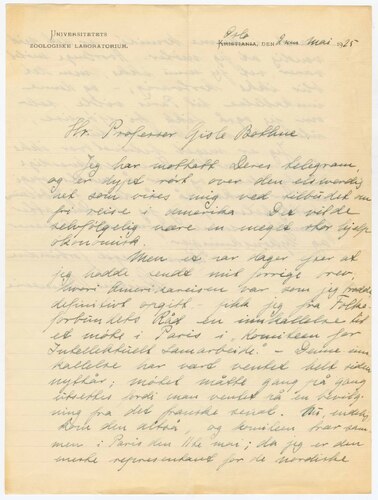 UNIVERSITETETS
ZOOLOGISKE LABORATORIUM.
Oslo
KRISTIANIA, DEN 2nen mai 1925
Hr. Professor Gisle Bothne
Jeg har mottatt Deres telegram,
og er dypt rørt over den elskverdig-
het som vises mig ved tilbudet om
fri reise i Amerika. Det vilde
selvfølgelig være en meget stor hjelp
økonomisk.
Men et par dager efter at
jeg hadde sendt mit forrige brev,
hvori Amerikareisen var som jeg trodde
definitivt opgitt, fikk jeg fra Folke-
forbundets Råd en innkallelse til
et møte i Paris i "Komiteen for
Intellektuelt Samarbeide". - Denne inn-
kallelse har vært ventet helt siden
nyttår; møtet måtte gang på gang
utsettes fordi man ventet på en bevilg-
ning fra det franske senat. Nu, endelig
kom den altså, og komiteen trær sam-
men i Paris den 11te mai; da jeg er den
eneste representant for de nordiske